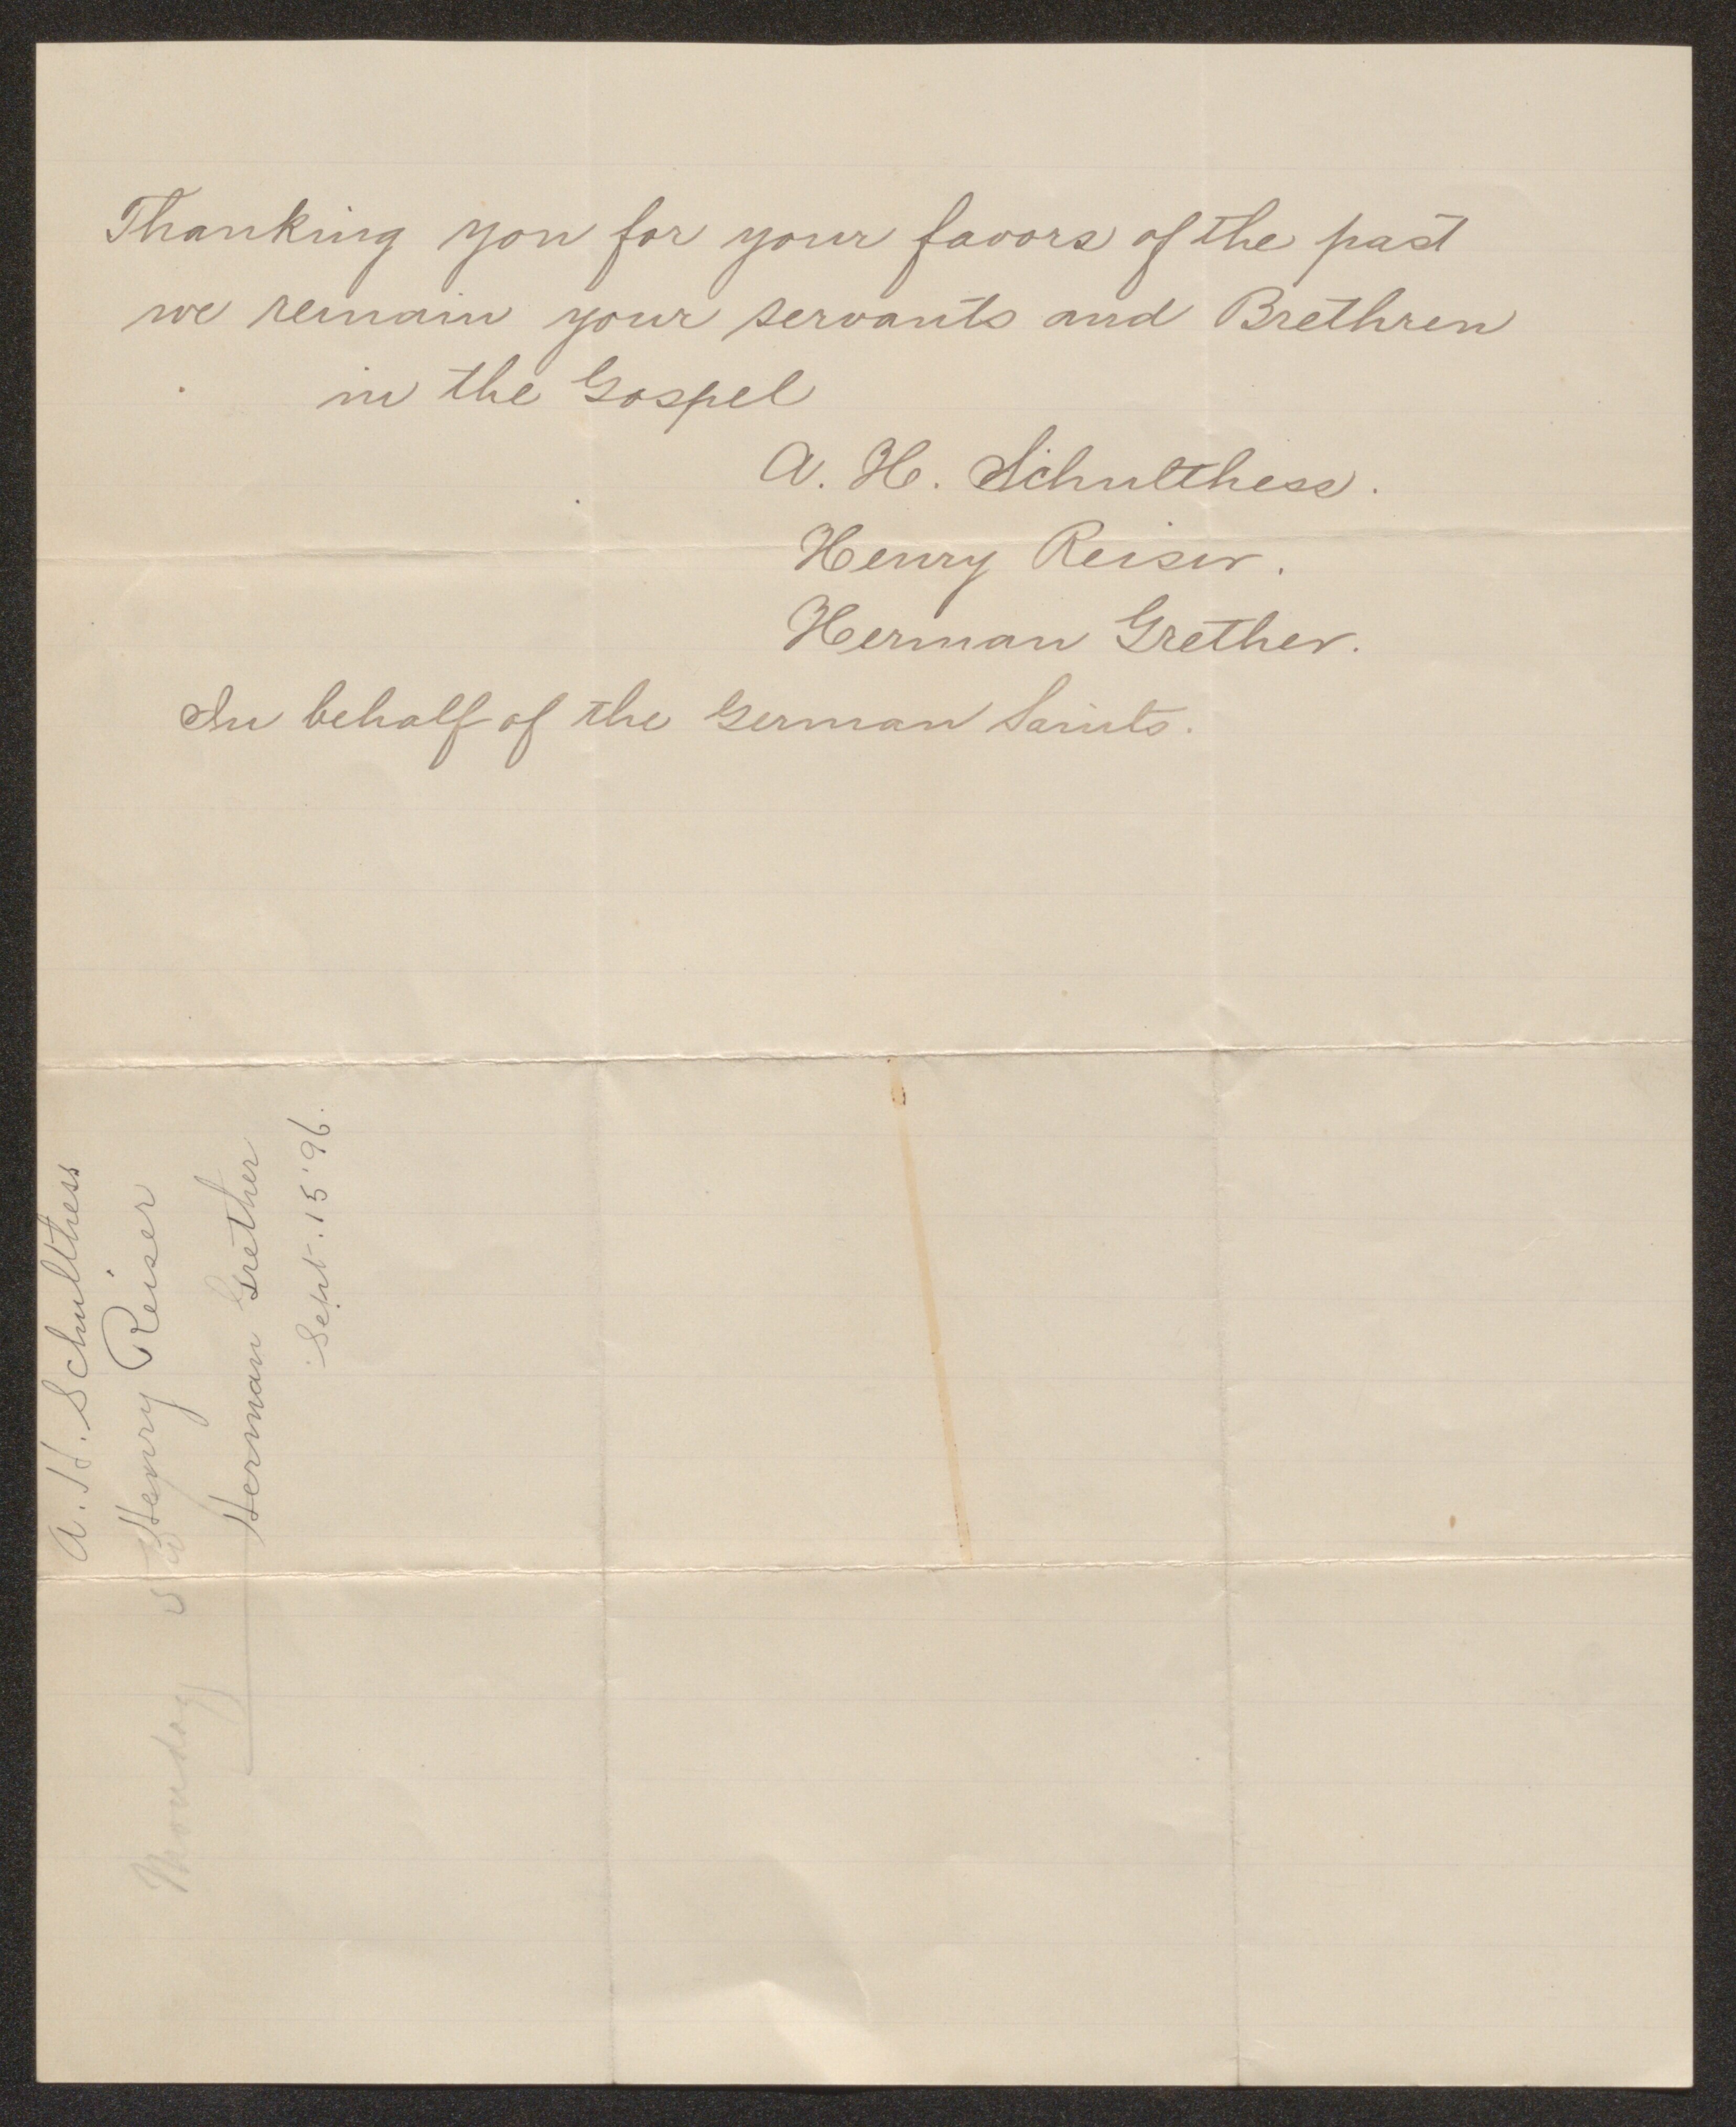 Thanking you for your favors of the past
we remain your servants and Brethren
in the Gospel
A. H. Schulthess.
Henry Reiser.
Herman Grether.
In behalf of the German Saints.
A. H. Schulthess
Henry Reiser
Herman Grether
Sept. 15 '96.
Monday